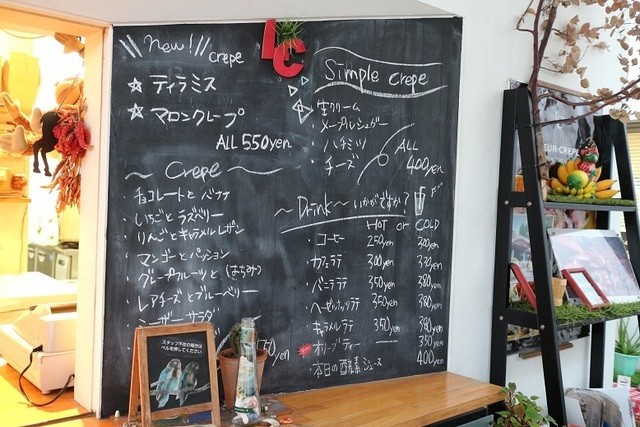 new! crepe
☆ ティラミス
☆ マロンクレープ
ALL 550yen
~ Crepe ~
・チョコレートと バナナ
・いちごと ラズベリー
・りんごとキャラメルレーズン
・マンゴーと パッション
・グレープフルーツと (はちみつ)
・レアチーズと ブルーベリー
・シーザーサラダ
yen
LC
Simple crepe
・生クリーム
・メープルシュガー
・ハチミツ
・チーズ
ALL
400yen
~ Drink ~ いかがですか?
HOT or COLD
・コーヒー 250yen 300yen
・カフェラテ 300yen 330yen
・バニララテ 350yen 380yen
・ヘーゼルナッツラテ 350yen 380yen
・キャラメルラテ 350yen 390yen
・オリーブティー 350yen
・本日の酵素ジュース 400yen
スタッフ不在の場合は
ベルを押してください
EUR CREPE